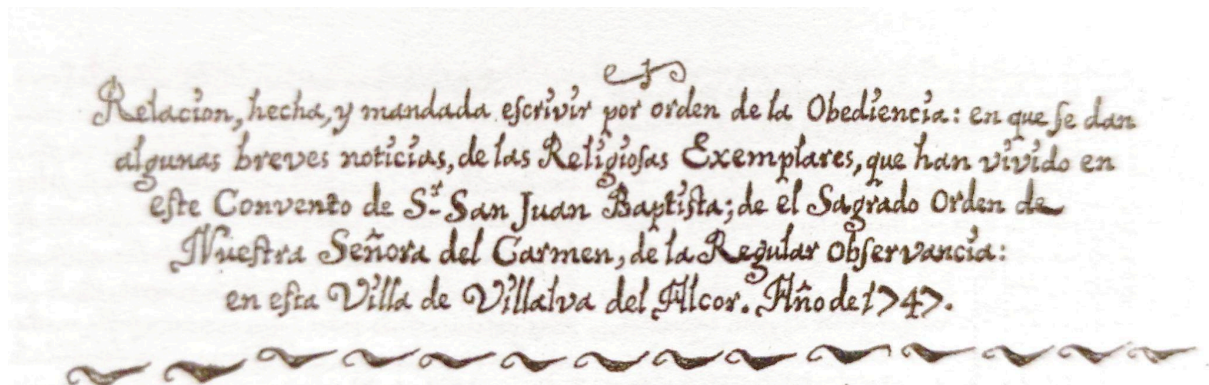 Relacion, hecha, y mandada escrivir por orden de la Obediencia: en que se dan
algunas breves noticias, de las Religiosas Exemplares, que han vivido en
este Convento de Sr. San Juan Baptista; de el Sagrado Orden de
Nuestra Señora del Carmen, de la Regular Observancia:
en esta Villa de Villalva del Alcor. Año de 1747.